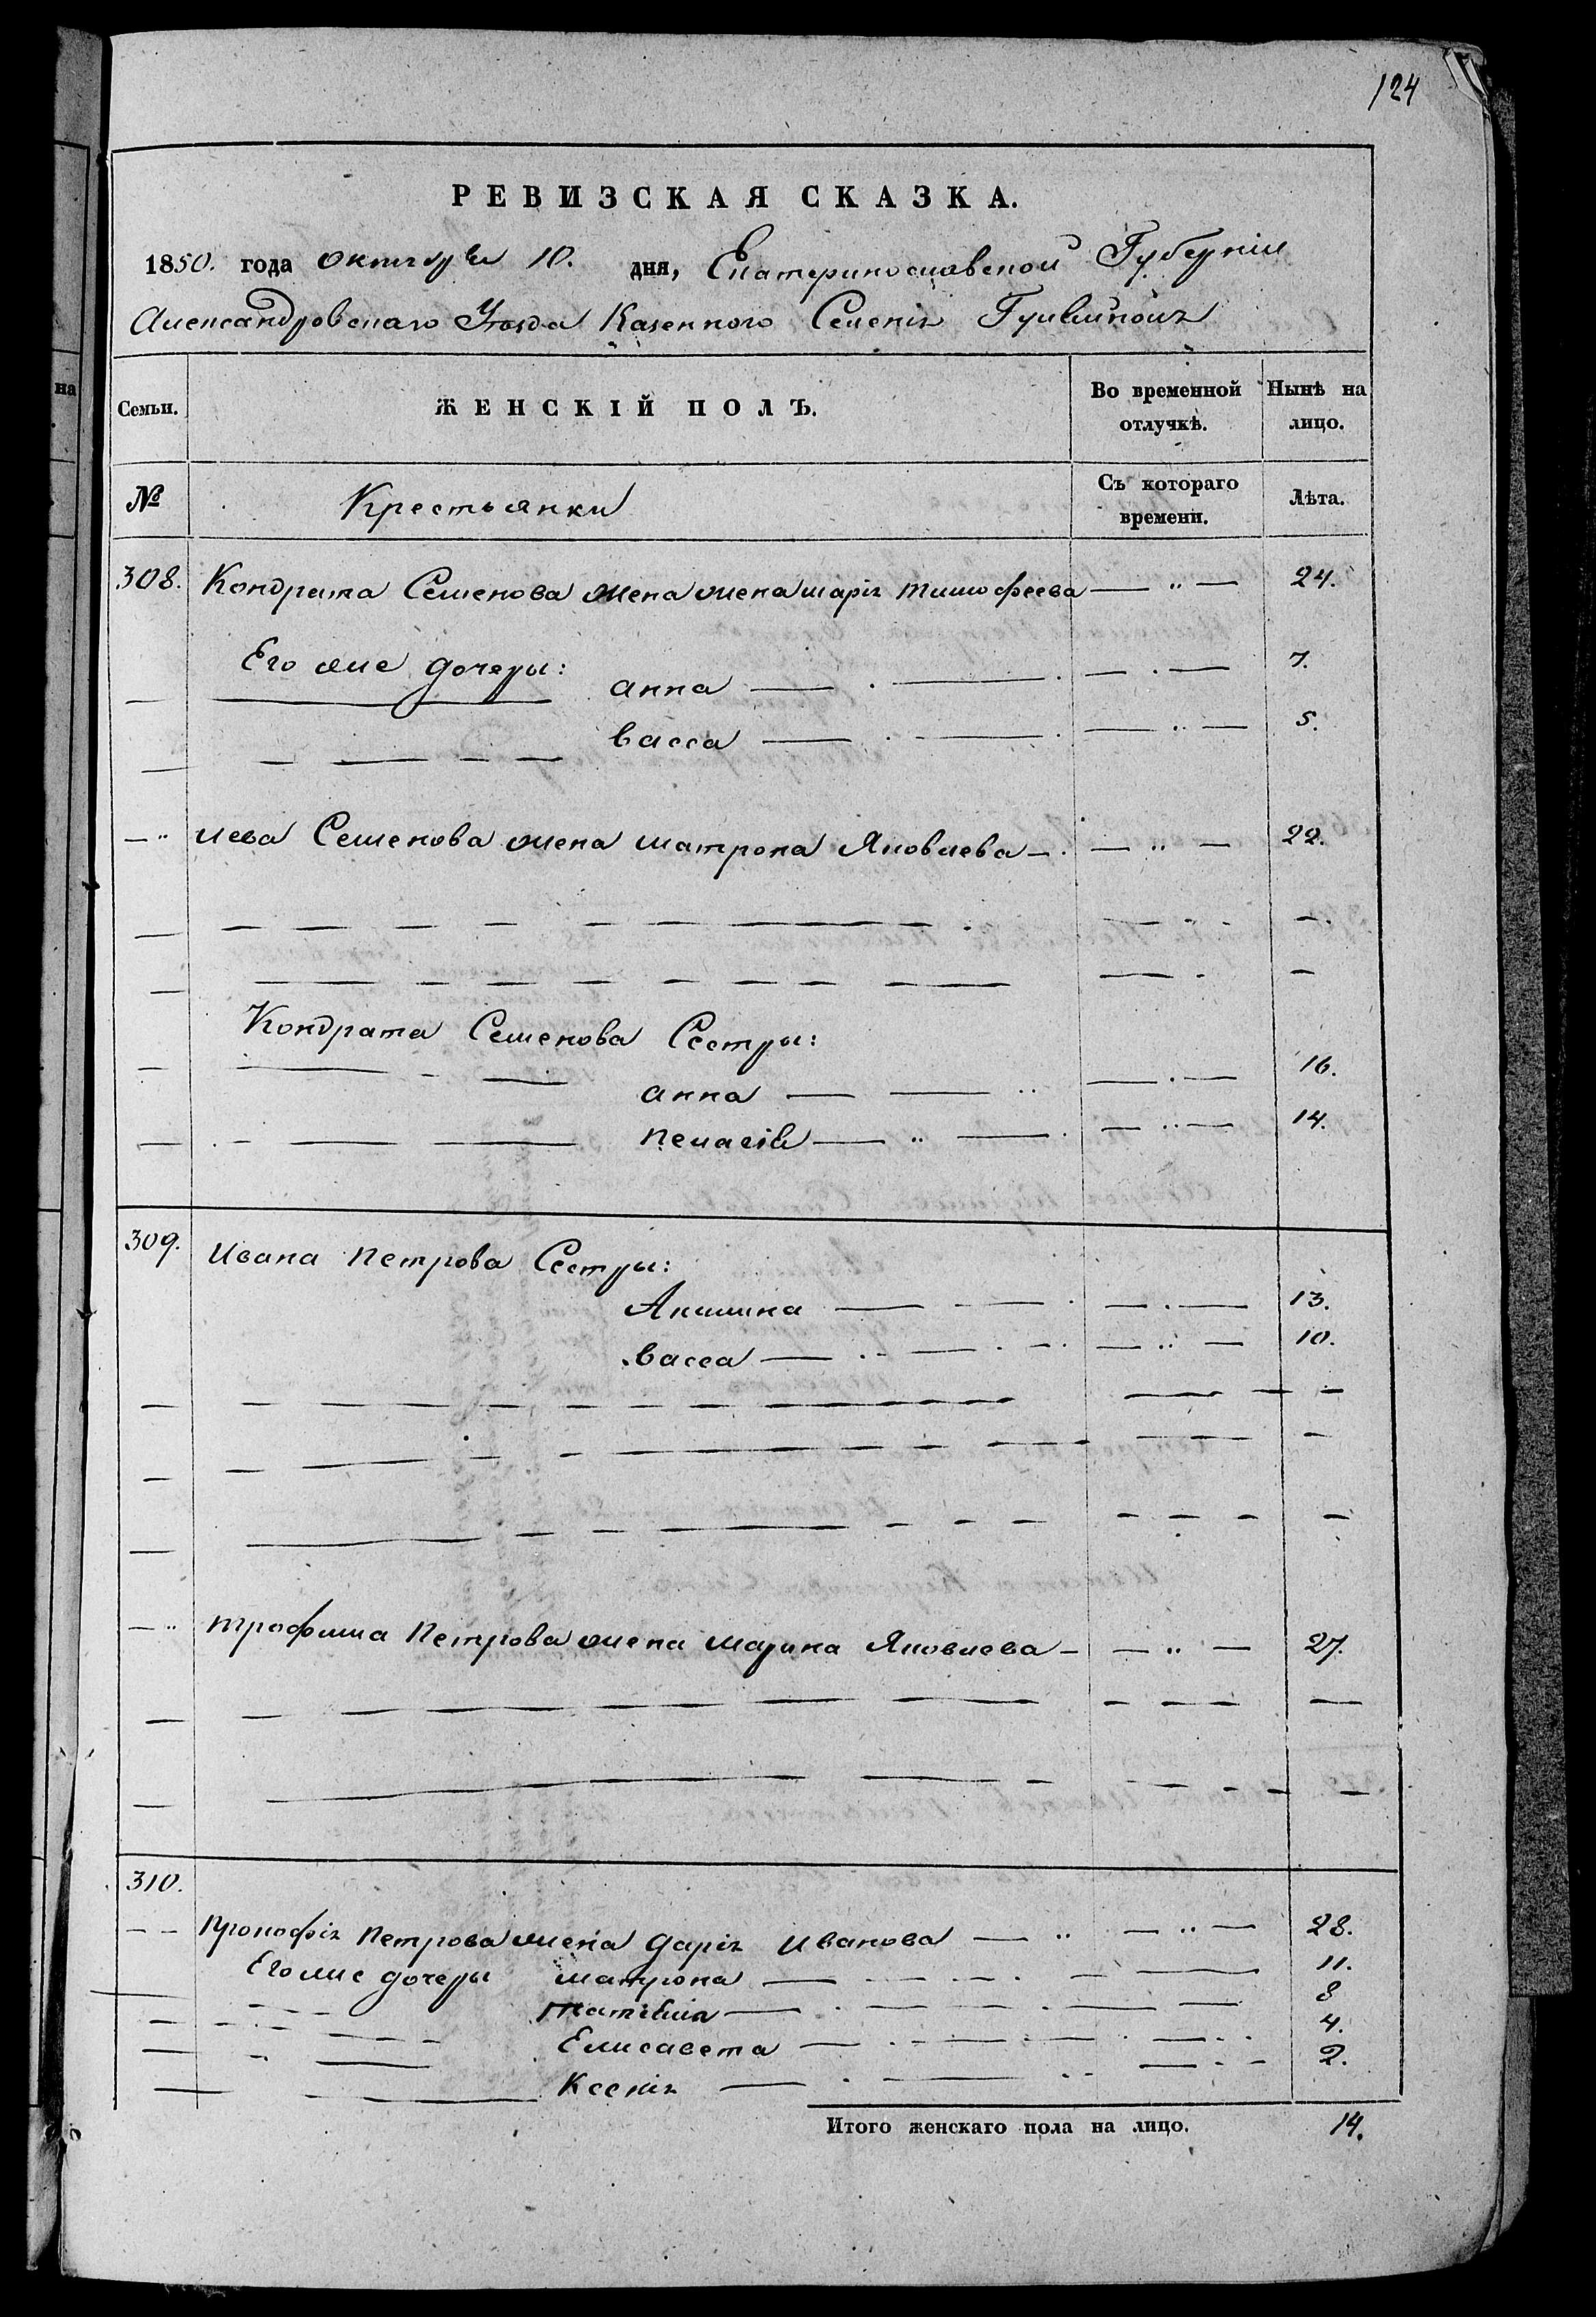 124
РЕВИЗСКАЯ СКАЗКА.
1850. года октября 10. дня, Екатеринославской Губернии
Александровскаго Уезда Казенного Селения
Семьи. ЖЕНСКІЙ ПОЛЪ. Во временной отлучкѣ. Нынѣ на лицо.
№ Крестьянки Съ котораго времени. Лѣта.
308. Кондрата Семенова жена жена марія тимофеева — " — 24.
Его же дочеры: анна — . — 7.
васса — . — 5.
— " Иева Семенова жена матрона Яковлева — " — 22.
Кондрата Семенова Сестры:
анна — — 16.
пелагія — " — 14.
309. Ивана Петрова Сестры:
Акилина — 13.
васса — 10.
— " трофима Петрова жена марина Яковлева — " — 27.
310.
Прокофія Петрова жена дарія Иванова — " — 28.
Его же дочеры матрона — 11.
татіяна — 8
Елисавета — 4.
Ксенія — 2.
Итого женскаго пола на лицо. 14.
на